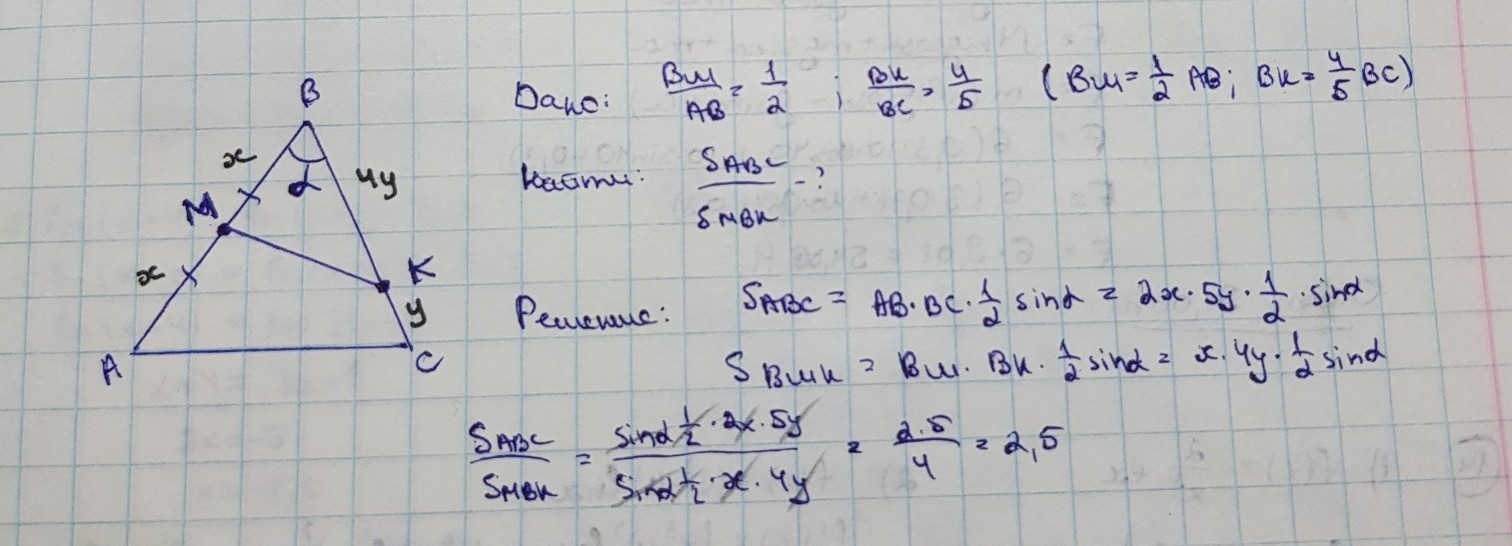 B
x
α
4y
M
x
K
y
A
C
Дано: BM/AB = 1/2 ; BK/BC = 4/5 (BM = 1/2 AB; BK = 4/5 BC)
Найти: S ABC / S MBK - ?
Решение: S ABC = AB · BC · 1/2 sinα = 2x · 5y · 1/2 · sinα
S BMK = BM · BK · 1/2 sinα = x · 4y · 1/2 sinα
S ABC / S MBK = sinα 1/2 · 2x · 5y / sinα 1/2 · x · 4y = 2·5/4 = 2,5